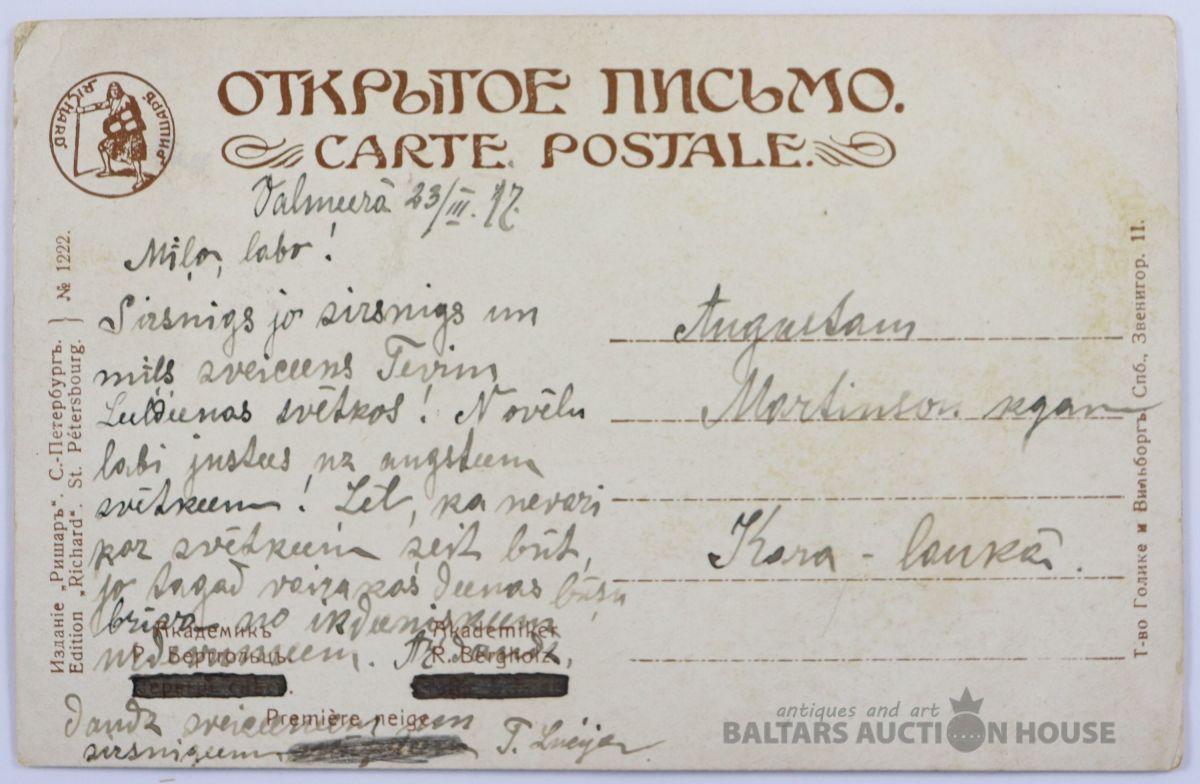 ОТКРЫТОЕ ПИСЬМО.
CARTE POSTALE.
RICHARD
РИШАРЪ
Valmeerā 23/III. 17.
Miļo, labo!
Sirsnigs jo sirsnigs un
mīļs sveiceens Tevim
Leeldeenas svētkos! Novēlu
labi justees uz augsteem
svētkeem! Žēl, ka nevari
par svētkeem šeit būt,
jo tagad vairakas deenas būšu
brīva no ikdeeniškeem
Ar daudz,
daudz sveiceeneem
sirsnigeem
T. Lucija
Augustam
Martinson kgam
Kara-laukā.
Издание „Ришаръ“. С.-Петербургъ.
Edition „Richard“. St. Pétersbourg.
№ 1222.
Академикъ
Р. Берггольцъ.
Akademiker
R. Bergholz.
Première neige
Т-во Голике и Вильборгъ. Спб., Звенигор. 11.
antiques and art
BALTARS AUCTION HOUSE